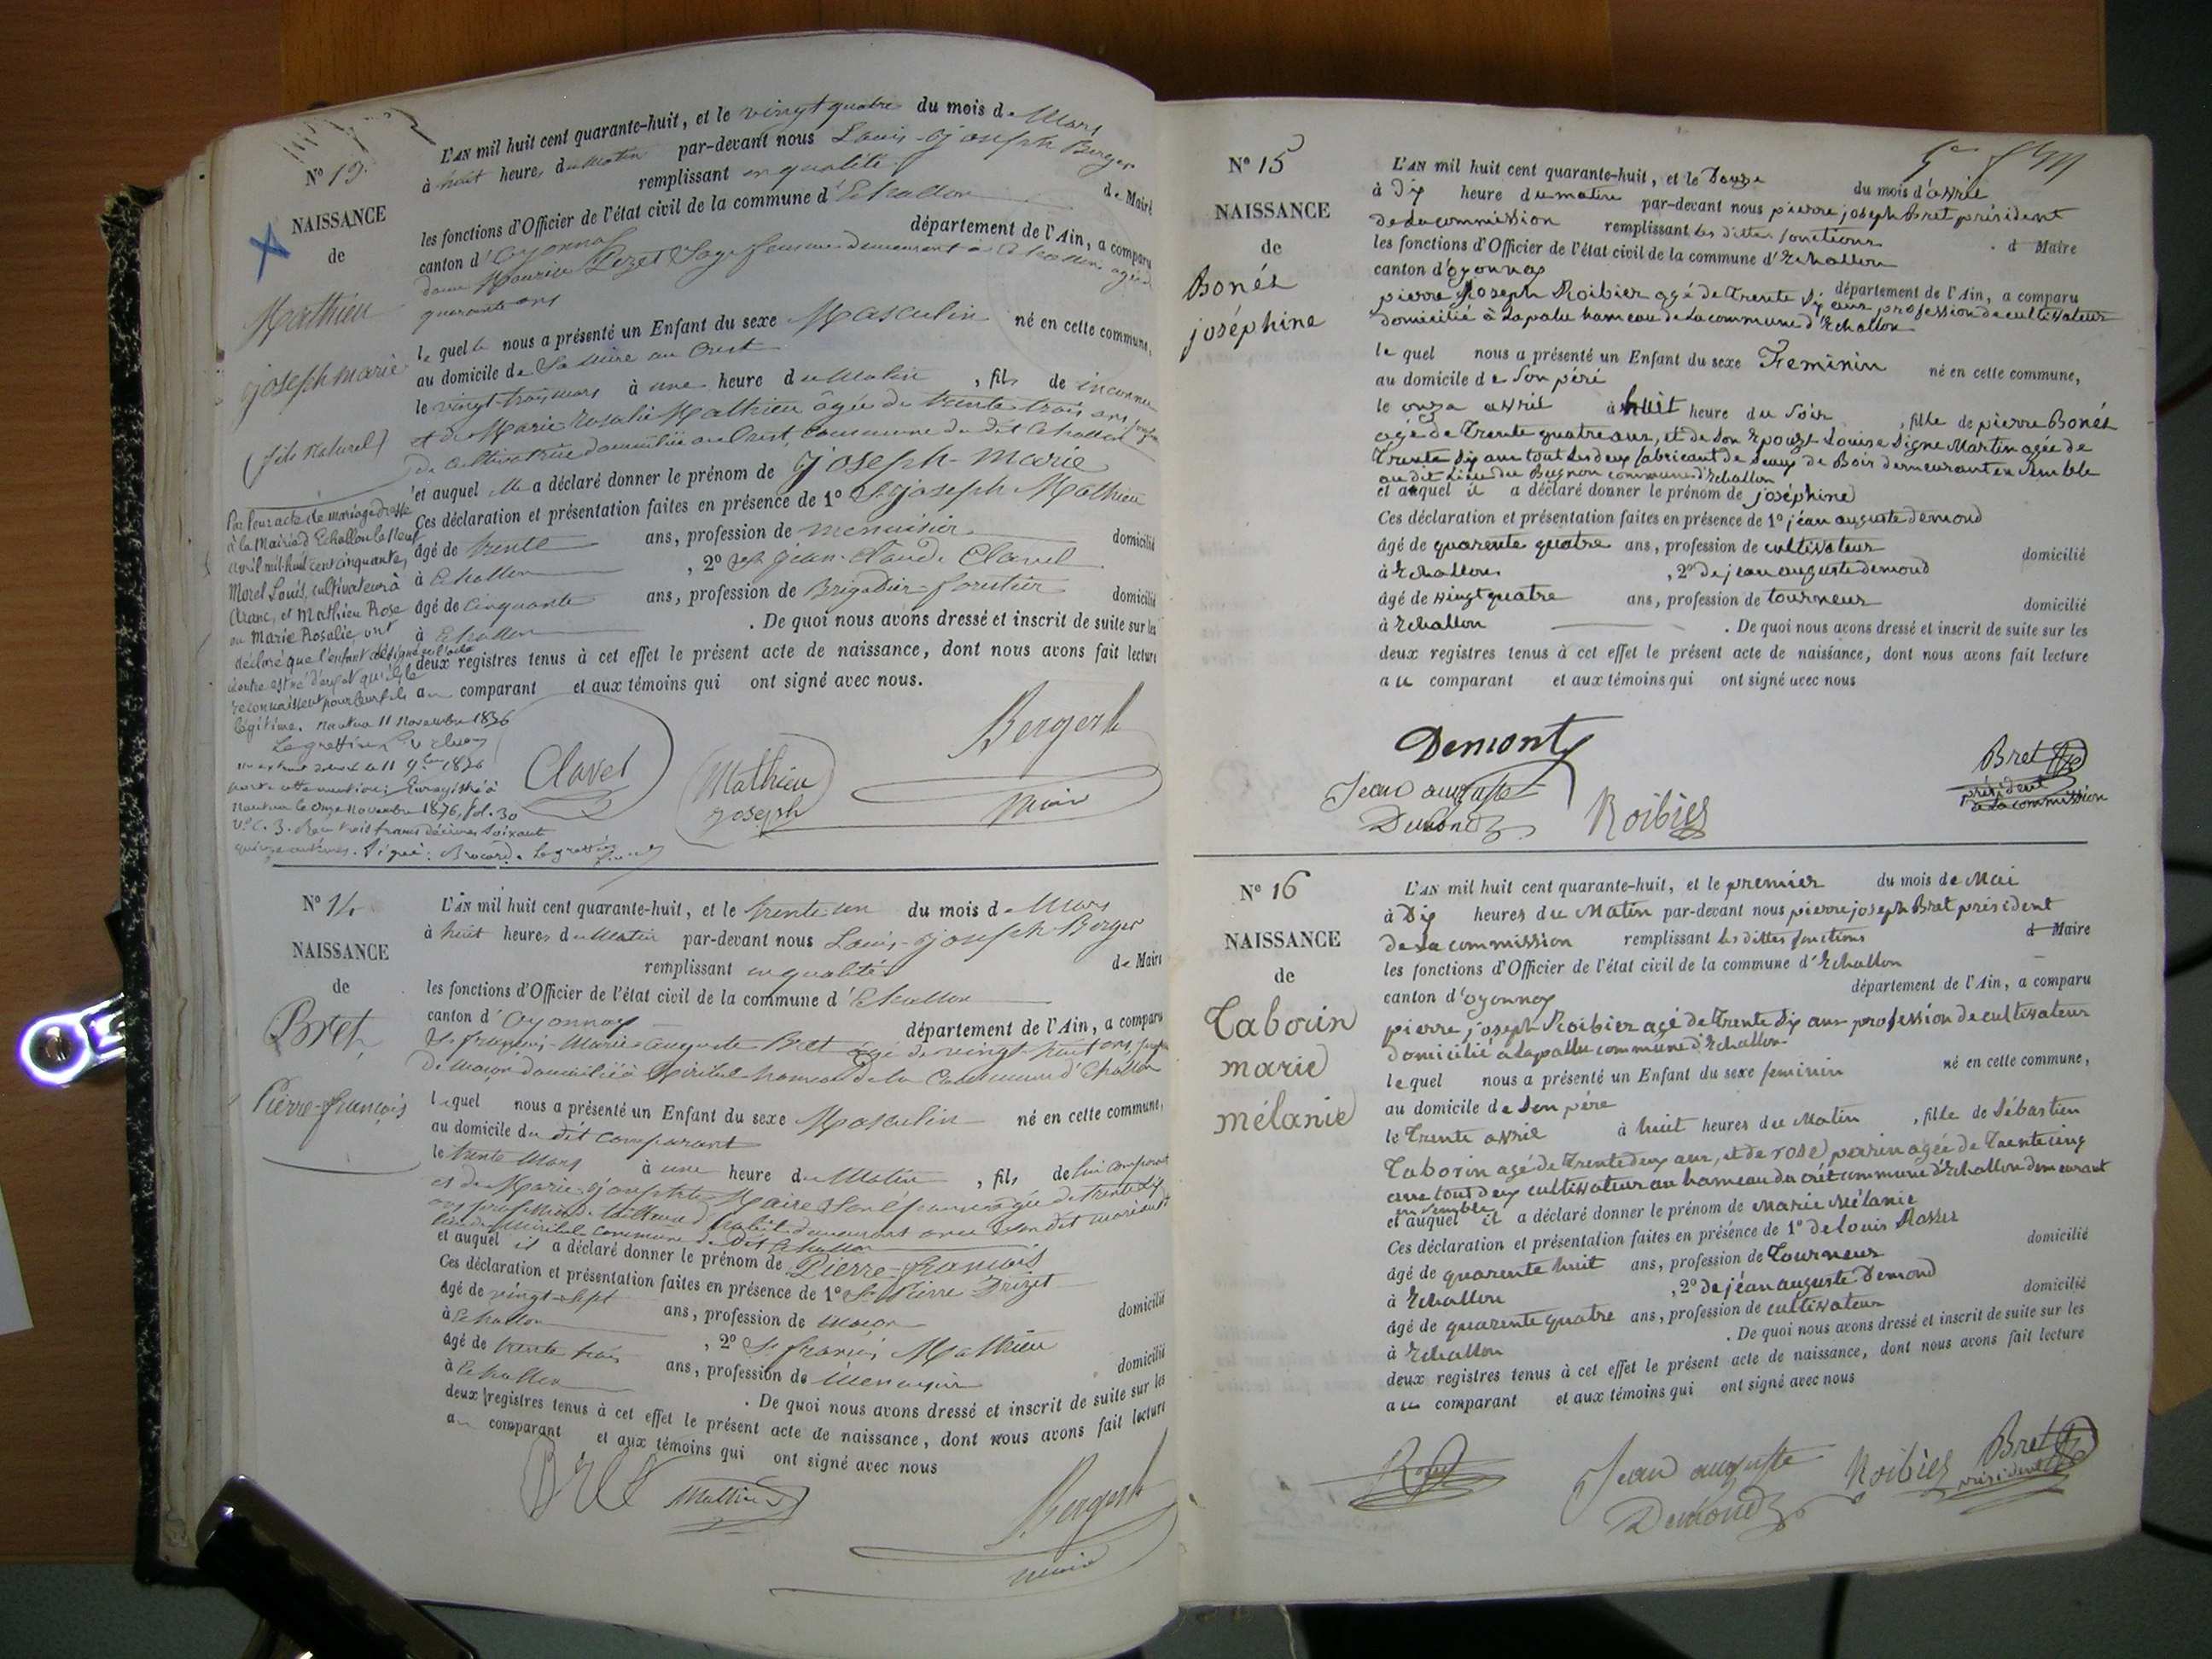 N° 13.
NAISSANCE
de
Mathieu
joseph marie
(fils Naturel)
Par leur acte de mariage dressé
à la Mairie d'Echallon le Neuf
avril mil huit cent cinquante,
Morel Louis, cultivateur à
Aranc, et Mathieu Rose
ou Marie Rosalie ont
déclaré que l'enfant désigné en l'acte
contre est né d'eux et qu'ils le
reconnaissent pour leur fils
légitime. Nantua 11 Novembre 1876
Le greffier
porte cette mention: Enregistré à
Nantua le onze Novembre 1876, fol. 30
V° c. 3. Reçu trois francs décimes soixante
quinze centimes. Signé: Brocard. Le greffier
L'AN mil huit cent quarante-huit, et le vingt quatre du mois de Mars
à huit heures du Matin par-devant nous Louis-joseph Berger
remplissant en qualité de Maire
les fonctions d'Officier de l'état civil de la commune d'Echallon
canton d'Oyonnax département de l'Ain, a comparu
dame Maurice Pezet Sage femme demeurant à Echallon agée
quarante ans
le quel le nous a présenté un Enfant du sexe Masculin né en cette commune,
au domicile de Sa Mère au Crest
le vingt-trois mars à une heure du Matin, fils de inconnu
et de Marie Rosalie Mathieu âgée de trente trois ans,
de Cultivatrice domiciliée au Crest, Commune du dit Echallon
et auquel elle a déclaré donner le prénom de Joseph-Marie
Ces déclaration et présentation faites en présence de 1° Sr joseph Mathieu
âgé de trente ans, profession de menuisier domicilié
à Echallon, 2° Jean-Claude Clavel
âgé de Cinquante ans, profession de Brigadier-forestier domicilié
à Echallon. De quoi nous avons dressé et inscrit de suite sur les
deux registres tenus à cet effet le présent acte de naissance, dont nous avons fait lecture
au comparant et aux témoins qui ont signé avec nous.
Clavel Mathieu joseph Berger L maire
N° 14
NAISSANCE
de
Bret
Pierre-françois
L'AN mil huit cent quarante-huit, et le trente un du mois de Mars
à huit heures du Matin par-devant nous Louis-joseph Berger
remplissant en qualité de Maire
les fonctions d'Officier de l'état civil de la commune d'Echallon
canton d'Oyonnax département de l'Ain, a comparu
Sr françois-Marie-auguste Bret âgé de vingt-huit ans,
de maçon domicilié à hameau de la Commune d'Echallon
lequel nous a présenté un Enfant du sexe Masculin né en cette commune,
au domicile du dit Comparant
le trente Mars à une heure du Matin, fils de lui comparant
et de Marie-josephte Maire agée de trente dix
ans profession de tailleuse d'habits demeurant avec son dit mari au
lieu de commune du Dit Echallon
et auquel il a déclaré donner le prénom de Pierre-François
Ces déclaration et présentation faites en présence de 1° Sr Pierre
âgé de vingt-sept ans, profession de maçon domicilié
à Echallon, 2° Sr françois Mathieu
âgé de trente trois ans, profession de Menuisier domicilié
à Echallon. De quoi nous avons dressé et inscrit de suite sur les
deux registres tenus à cet effet le présent acte de naissance, dont nous avons fait lecture
au comparant et aux témoins qui ont signé avec nous
Bret Mathieu Berger L maire
N° 15
NAISSANCE
de
Bonés
joséphine
L'AN mil huit cent quarante-huit, et le Douze du mois d'avril
à dix heure du matin par-devant nous pierre joseph Bret président
de la commission remplissant les dittes fonctions d Maire
les fonctions d'Officier de l'état civil de la commune d'Echallon
canton d'oyonnax département de l'Ain, a comparu
pierre joseph Roibier agé de trente dix ans profession de cultivateur
domicilié à Lapalu hameau de la commune d'Echallon
le quel nous a présenté un Enfant du sexe Feminin né en cette commune,
au domicile de Son péré
le onze avril à huit heure du Soir, fille de pierre Bonés
agé de trente quatre ans, et de son Epouse Louise Signe Martin agée de
trente dix ans tout les deux fabricant de Seaux de Bois demeurant en semble
au dit Lieu du Bugnon commune d'Echallon
et auquel il a déclaré donner le prénom de joséphine
Ces déclaration et présentation faites en présence de 1° jéan auguste demond
âgé de quarente quatre ans, profession de cultivateur domicilié
à Echallon, 2° de jean auguste demond
âgé de vingt quatre ans, profession de tourneur domicilié
à Echallon. De quoi nous avons dressé et inscrit de suite sur les
deux registres tenus à cet effet le présent acte de naissance, dont nous avons fait lecture
au comparant et aux témoins qui ont signé avec nous
Demont Jean auguste Demond Roibier Bret président de la commission
N° 16
NAISSANCE
de
Taborin
marie
mélanie
L'AN mil huit cent quarante-huit, et le premier du mois de Mai
à Dix heures du Matin par-devant nous pierre joseph Bret président
de la commission remplissant les dittes fonctions d Maire
les fonctions d'Officier de l'état civil de la commune d'Echallon
canton d'oyonnax département de l'Ain, a comparu
pierre joseph Roibier agé de trente dix ans profession de cultivateur
domicilié à Lapallu commune d'Echallon
lequel nous a présenté un Enfant du sexe feminin né en cette commune,
au domicile de Son pére
le trente avril à huit heures du Matin, fille de Sébastien
Taborin agé de trente deux ans, et de rose perrin agée de trente cinq
ans tout deux cultivateur au hameau du crét commune d'Echallon demeurant
en semble
et auquel il a déclaré donner le prénom de Marie Mélanie
Ces déclaration et présentation faites en présence de 1° de Louis Rosset
âgé de quarente huit ans, profession de tourneur domicilié
à Echallon, 2° de jéan auguste Demond
âgé de quarente quatre ans, profession de cultivateur domicilié
à Echallon. De quoi nous avons dressé et inscrit de suite sur les
deux registres tenus à cet effet le présent acte de naissance, dont nous avons fait lecture
au comparant et aux témoins qui ont signé avec nous
Jean auguste Demond Roibier Bret président